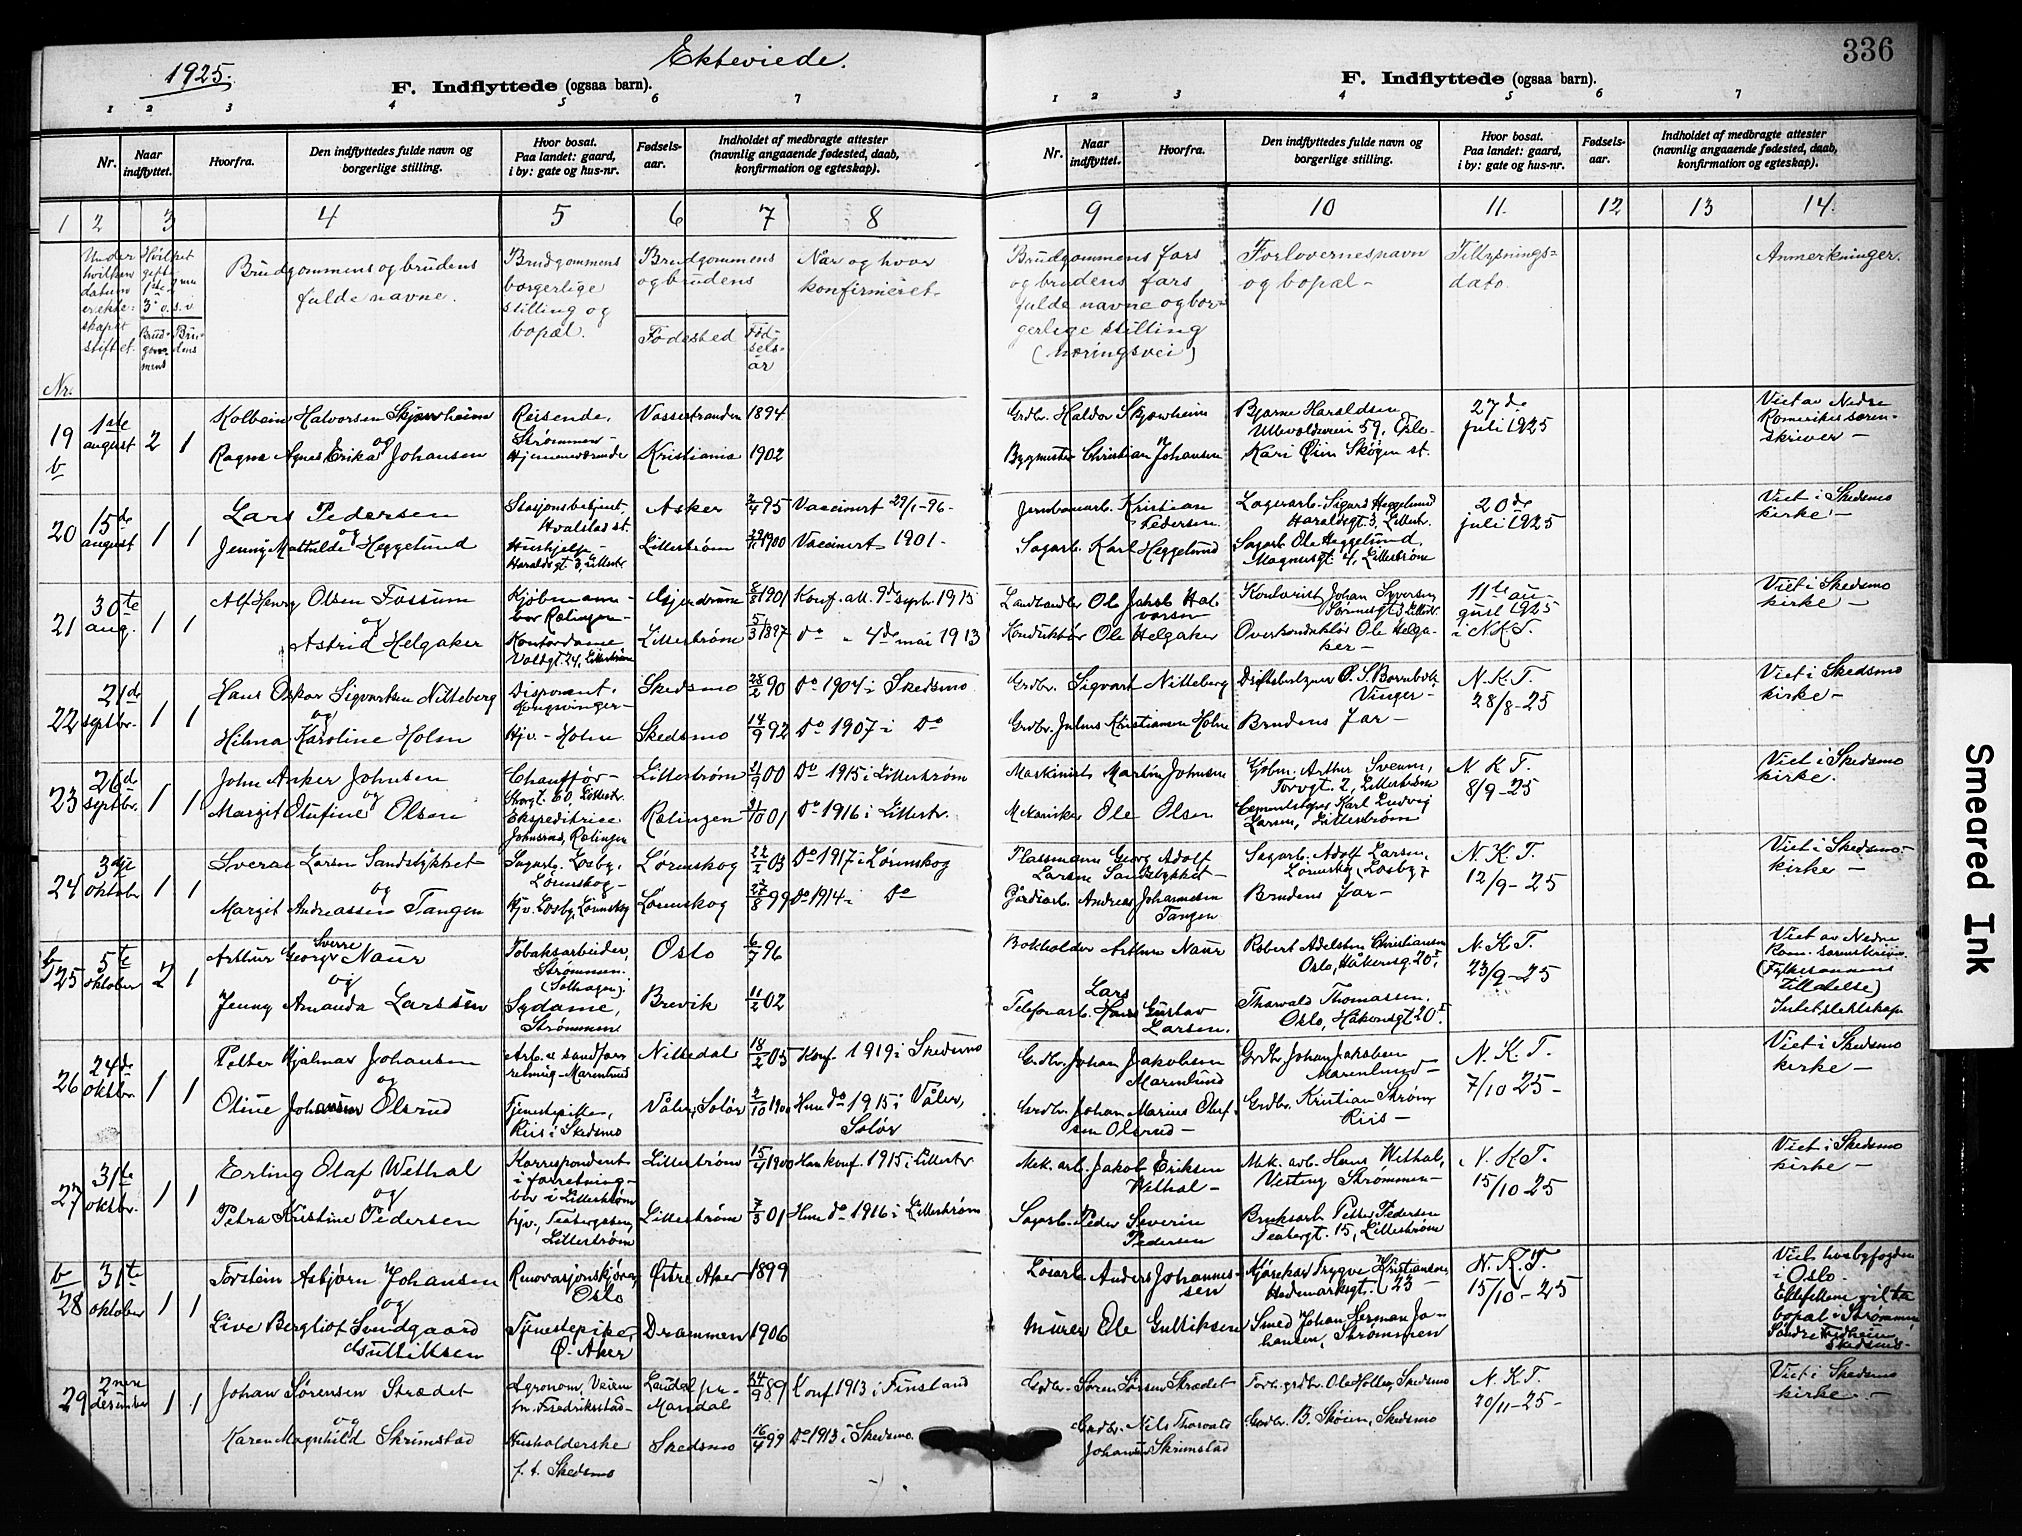 1925.
Ekteviede.
336
F. Indflyttede (ogsaa barn).
1 2 3 4 5 6 7
Nr.
Naar indflyttet.
Hvorfra.
Den indflyttedes fulde navn og borgerlige stilling.
Hvor bosat. Paa landet: gaard, i by: gate og hus-nr.
Fødsels-aar.
Indholdet af medbragte attester (navnlig angaaende fødested, daab, konfirmation og egteskap).
F. Indflyttede (ogsaa barn).
1 2 3 4 5 6 7
Nr.
Naar indflyttet.
Hvorfra.
Den indflyttedes fulde navn og borgerlige stilling.
Hvor bosat. Paa landet: gaard, i by: gate og hus-nr.
Fødsels-aar.
Indholdet af medbragte attester (navnlig angaaende fødested, daab, konfirmation og egteskap).
1 2 3 4 5 6 7 8
9 10 11. 12 13 14.
Nr.
Under hvilken datum er ekteskapet stiftet.
Hvilket gifte 1ste 2nen 3die o.s.v
Brudgommens
Brudens
Brudgommens og brudens fulde navne.
Brudgommens borgerlige stilling og bopæl.
Brudgommens og brudens
Fødested
Fødselsår
Når og hvor konfirmeret.
Brudgommens fars og brudens fars fulde navne og borgerlige stilling (næringsvei)
Forlovernes navn og bopæl -
Tillysnings-dato.
Anmerkninger.
19 b 1ste august 2 1
Kolbein Halvorsen Skjærheim
og
Ragna Agnes Erika Johansen
Reisende, Strømmen -
Hjemmeværende
Vassstranden 1894
Kristiania 1902
Grdbr. Haldor Skjærheim
Bygmester Christian Johansen
Bjarne Haraldsen Ullevoldsveien 59, Oslo-
Kari Øien Skøyen st.
27de juli 1925
Viet av Nedre Romerikes sorenskriver -
20 15de august 1 1
Lars Pedersen
og
Jenny Mathilde Heggelund
Stasjonsbetjent, Hvalstad st.
Hushjelp - Haraldsgt. 3, Lillestr.
Asker 2/4 95 Vaccinert 29/1-96-
Lillestrøm 1900 Vaccinert 1901-
Jernbanearb. Kristian Pedersen
Sagarb. Karl Heggelund
Lagerarb. Sigurd Heggelund Haraldsgt. 3, Lillestr.
Sagarb. Ole Heggelund, Magnusgt. 4, Lillestrøm
20de juli 1925
Viet i Skedsmo kirke -
21 30te aug. 1 1
Alf Henry Olsen Fossum
og
Astrid Helgaker
Kjøbmann - bor Rælingen -
Kontordame Voldgt. 24, Lillestrøm
Gjerdrum 8/8 1901 Konf. att. 9de septbr. 1915
Lillestrøm 5/3 1897 Do " 4de mai 1913
Landhandler Ole Jakob Halvorsen
Konduktør Ole Helgaker
Kontorist Johan Syversen, Sørumsgt. 3, Lillestr.
Overkonduktør Ole Helgaker -
11te august 1925 i N.K.T.
Viet i Skedsmo kirke -
22 21de septbr. 1 1
Hans Oskar Sigvartsen Nitteberg
og
Hilma Karoline Holm
Disponent, Kongsvinger -
Hjv. - Holm
Skedsmo 28/2 90 Do 1904 i Skedsmo
Skedsmo 14/9 92 Do 1907 i Do
Grdbr. Sigvart Nitteberg
Grdbr. Julius Kristiansen Holm
Driftsbestyrer O. S. Bornholt, Vinger -
Brudens far -
N. K. T. 28/8-25
Viet i Skedsmo kirke -
23 26de septbr. 1 1
John Asker Johnsen
og
Margit Olufine Olsen
Chauffør - Storgt. 60, Lillestr.
Ekspeditrice Johnsrud, Rælingen
Lillestrøm 21/9 00 Do 1915 i Lillestrøm
Rælingen 21/10 01 Do 1916 i Lillestr.
Maskinist Martin Johnsen
Mekaniker Ole Olsen
Kjøbm. Arthur Sveum, Torvgt. 2, Lillestrøm
Cementstøper Karl Ludvig Larsen, Lillestrøm
N. K. T. 8/9-25
Viet i Skedsmo kirke.
24 3dje oktober 1 1
Sverre Larsen Sandstykket
og
Margit Andreassen Tangen
Sagarb. Losby, Lørenskog -
Hjv. Losby, Lørenskog
Lørenskog 22/2 03 Do 1917 i Lørenskog
Lørenskog 27/8 99 Do 1914 i Do
Plassmann Georg Adolf Larsen Sandstykket -
Gårdsarb. Andreas Johannesen Tangen
Sagarb. Adolf Larsen, Lørenskog (Losby)
Brudens far -
N. K. T. 12/9-25
Viet i Skedsmo kirke -
b 25 5te oktober 2 1
Arthur Georg Sverre Naur
og
Jenny Amanda Larssen
Tobaksarbeider, Strømmen. (Solhagen).
Sydame, Strømmen
Oslo 6/7 96
Brevik 11/2 02
Bokholder Arthur Naur
Telefonarb. Lars Gustav Larsen.
Robert Adelsten Christiansen Oslo, Håkonsg. 20I,
Thorvald Thomassen, Oslo, Håkonsgt. 20I.
N. K. T. 23/9-25
Viet av Nedre Rom. sorenskriver. (Fylkesmannens Tillatelse) Intet slektskap
26 24de oktbr. 1 1
Petter Hjalmar Johansen
og
Oline Johansen Olsrud
Arb. v. sandforretning - Marenlund
Tjenestepike -, Riis i Skedsmo
Nittedal 18/2 05 Konf. 1919 i Skedsmo
Våler, Solør 2/10 1900 Hun do 1915 i Våler, Solør
Grdbr. Johan Jakobsen Marenlund
Grdbr. Johan Marius Olufsen Olsrud -
Grdbr. Johan Jakobsen Marenlund -
Grdbr. Kristian Strøm, Riis -
N. K. T. 7/10 25-
Viet i Skedsmo kirke -
27 31te oktbr. 1 1
Erling Olaf Wethal
og
Petra Kristine Pedersen
Korrespondent i forretning - bor i Lillestrøm
hjv., Teatergaten, Lillestrøm
Lillestrøm 15/4 1900 Han konf. 1915 i Lillestr
Lillestrøm 7/3 01 Hun do 1916 i Lillestrøm
Mek. arb. Jakob Eriksen Wethal -
Sagarb. Peder Severin Pedersen
Mek. arb. Hans Wethal, Vesteng Strømmen -
Bruksarb. Petter Pedersen Teatergt. 15, Lillestrøm
N. K. T. 15/10-25
Viet i Skedsmo kirke -
b 28 31te oktober 1 1
Torstein Asbjørn Johansen
og
Live Bergliot Sundgaard Gulliksen
Renovasjonskjører, Oslo
Tjenestepike, Ø. Aker
Østre Aker 1899
Drammen 1906
Løsarb. Anders Johannessen
Murer Ole Gulliksen
Kjørekar Trygve Kristiansen, Hedemarksgt. 23 -
Smed Johan Herman Johansen, Strømmen
N. K. T. 15/10-25
Viet hos byfogden i Oslo. Ektefellene vil ta bopæl i Strømmen, Søndre Fredheim, Skedsmo -
29 2nen desember 1 1
Johan Sørensen Strædet
og
Karen Magnhild Skrimstad
Agronom, Veien pr. Fredriksstad -
Husholderske f. t. Skedsmo
Laudal pr. Mandal 24/9 89 Konf. 1913 i Finsland
Skedsmo 16/4 99 Do 1913 i Skedsmo.
Grdbr. Søren Sørsen Strædet
Grdbr. Nils Thorvald Johansen Skrimstad
Forh. grdbr. Ole Holler, Skedsmo
Grdbr. B. Skøien, Skedsmo
N. K. T. 20/11-25-
Viet i Skedsmo kirke. -
Smeared Ink